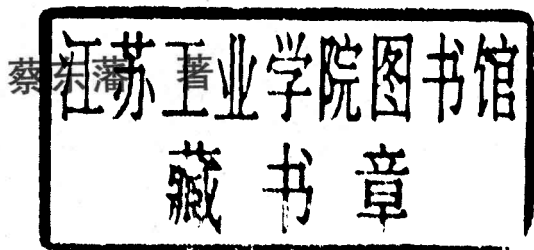 蔡东藩 著
江苏工业学院图书馆
藏书章